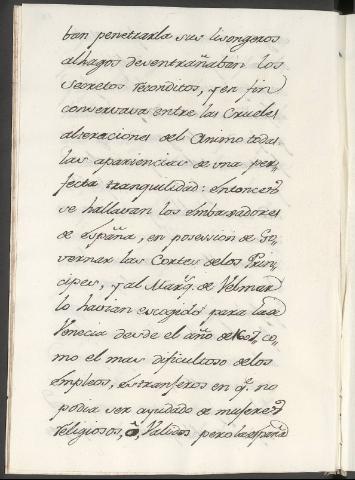 ban penetrarla sus lisongeros
alhagos desentrañaban los
secretos reconditos, y en fin
conservava entre las crueles
alteraciones del Animo todas
las apariencias de una per-
fecta tranquilidad: entonces
se hallavan los embaxadores
de España, en posession de Go-
vernar las Cortes de los Prin-
cipes, y al Marq.s de Velmar
lo havian escogido para la de
Venecia desde el año de 1607, co-
mo el mas dificultoso de los
empleos, estranjeros en q.e no
podia ser ayudado de mujeres
religiosos, ô, Validos pero la españa